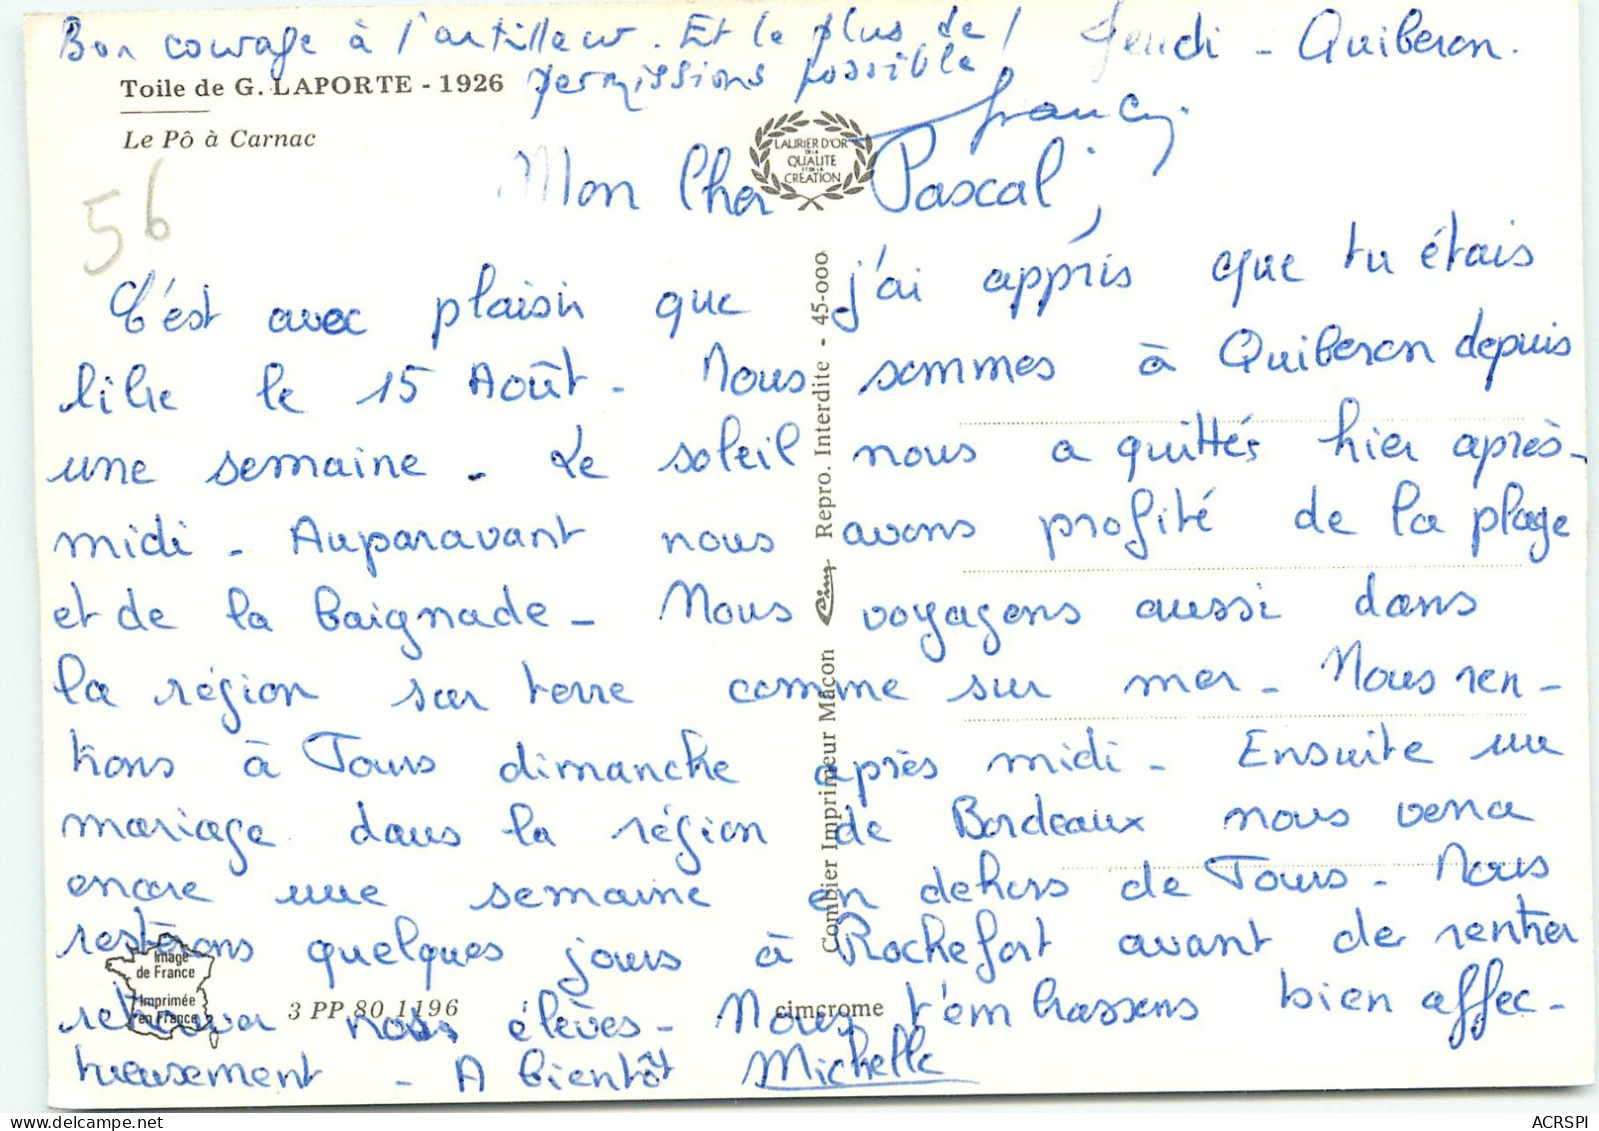 Bon courage à l'artilleur. Et le plus de
permissions possible
Jeudi - Quiberon.
Toile de G. LAPORTE - 1926
Le Pô à Carnac
56
LAURIER D'OR
DE LA
QUALITE
ET DE LA
CREATION
Mon Cher Pascal,
C'est avec plaisir que j'ai appris que tu étais
libre le 15 Août - Nous sommes à Quiberon depuis
une semaine - Le soleil nous a quittés hier après-
midi - Auparavant nous avons profité de la plage
et de la baignade - Nous voyageons aussi dans
la région sur terre comme sur mer - Nous ren-
trons à Tours dimanche après midi - Ensuite un
mariage dans la région de Bordeaux nous vena
encore une semaine en dehors de Tours - Nous
resterons quelques jours à Rochefort avant de rentrer
retrouver nos élèves - Nous t'embrassons bien affec-
tueusement - A bientôt Michelle
Combier Imprimeur Mâcon Cim Repro. Interdite - 45-000
Image
de France
Imprimée
en France
3 PP 80 1196
cimcrome
ACRSPI